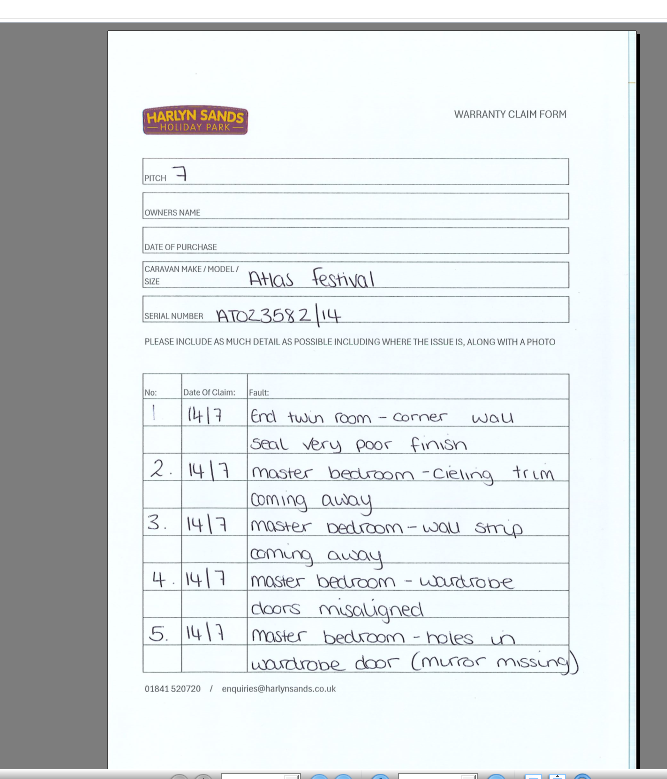 HARLYN SANDS
HOLIDAY PARK
WARRANTY CLAIM FORM
PITCH 7
OWNERS NAME
DATE OF PURCHASE
CARAVAN MAKE / MODEL /
SIZE Atlas festival
SERIAL NUMBER ATO23582/14
PLEASE INCLUDE AS MUCH DETAIL AS POSSIBLE INCLUDING WHERE THE ISSUE IS, ALONG WITH A PHOTO
No: Date Of Claim: Fault:
1 14/7 End twin room - corner wall
seal very poor finish
2. 14/7 master bedroom - cieling trim
coming away
3. 14/7 master bedroom - wall strip
coming away
4. 14/7 master bedroom - wardrobe
doors misaligned
5. 14/7 master bedroom - holes in
wardrobe door (mirror missing)
01841 520720 / enquiries@harlynsands.co.uk